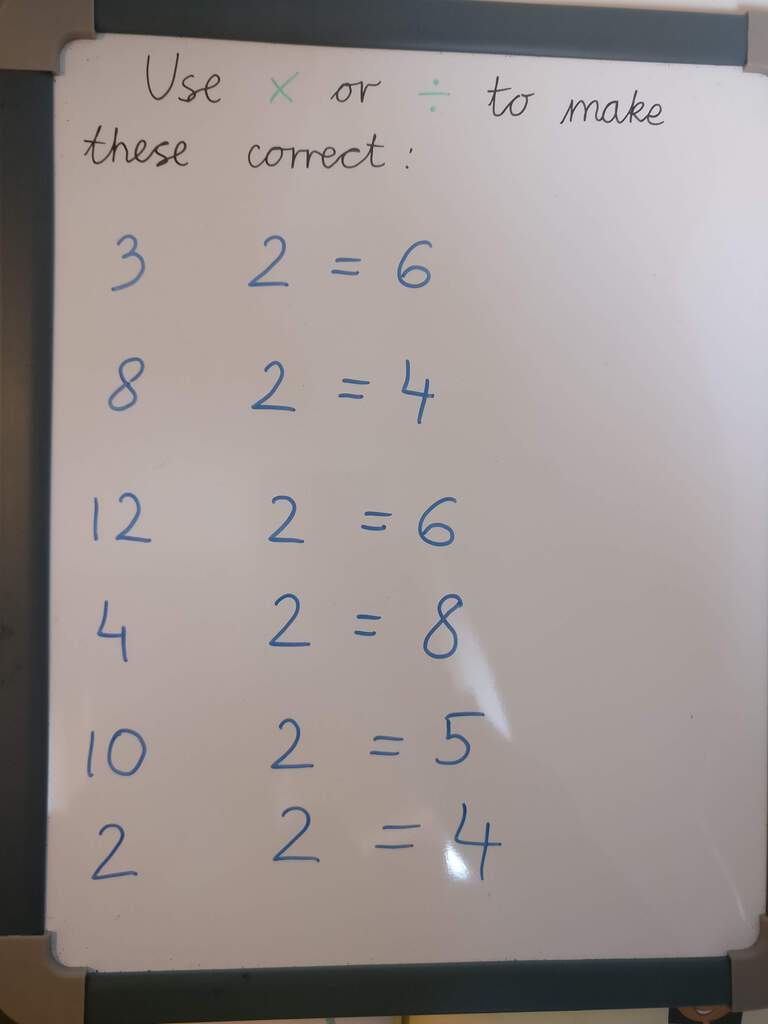 Use × or ÷ to make
these correct:
3 2 = 6
8 2 = 4
12 2 = 6
4 2 = 8
10 2 = 5
2 2 = 4